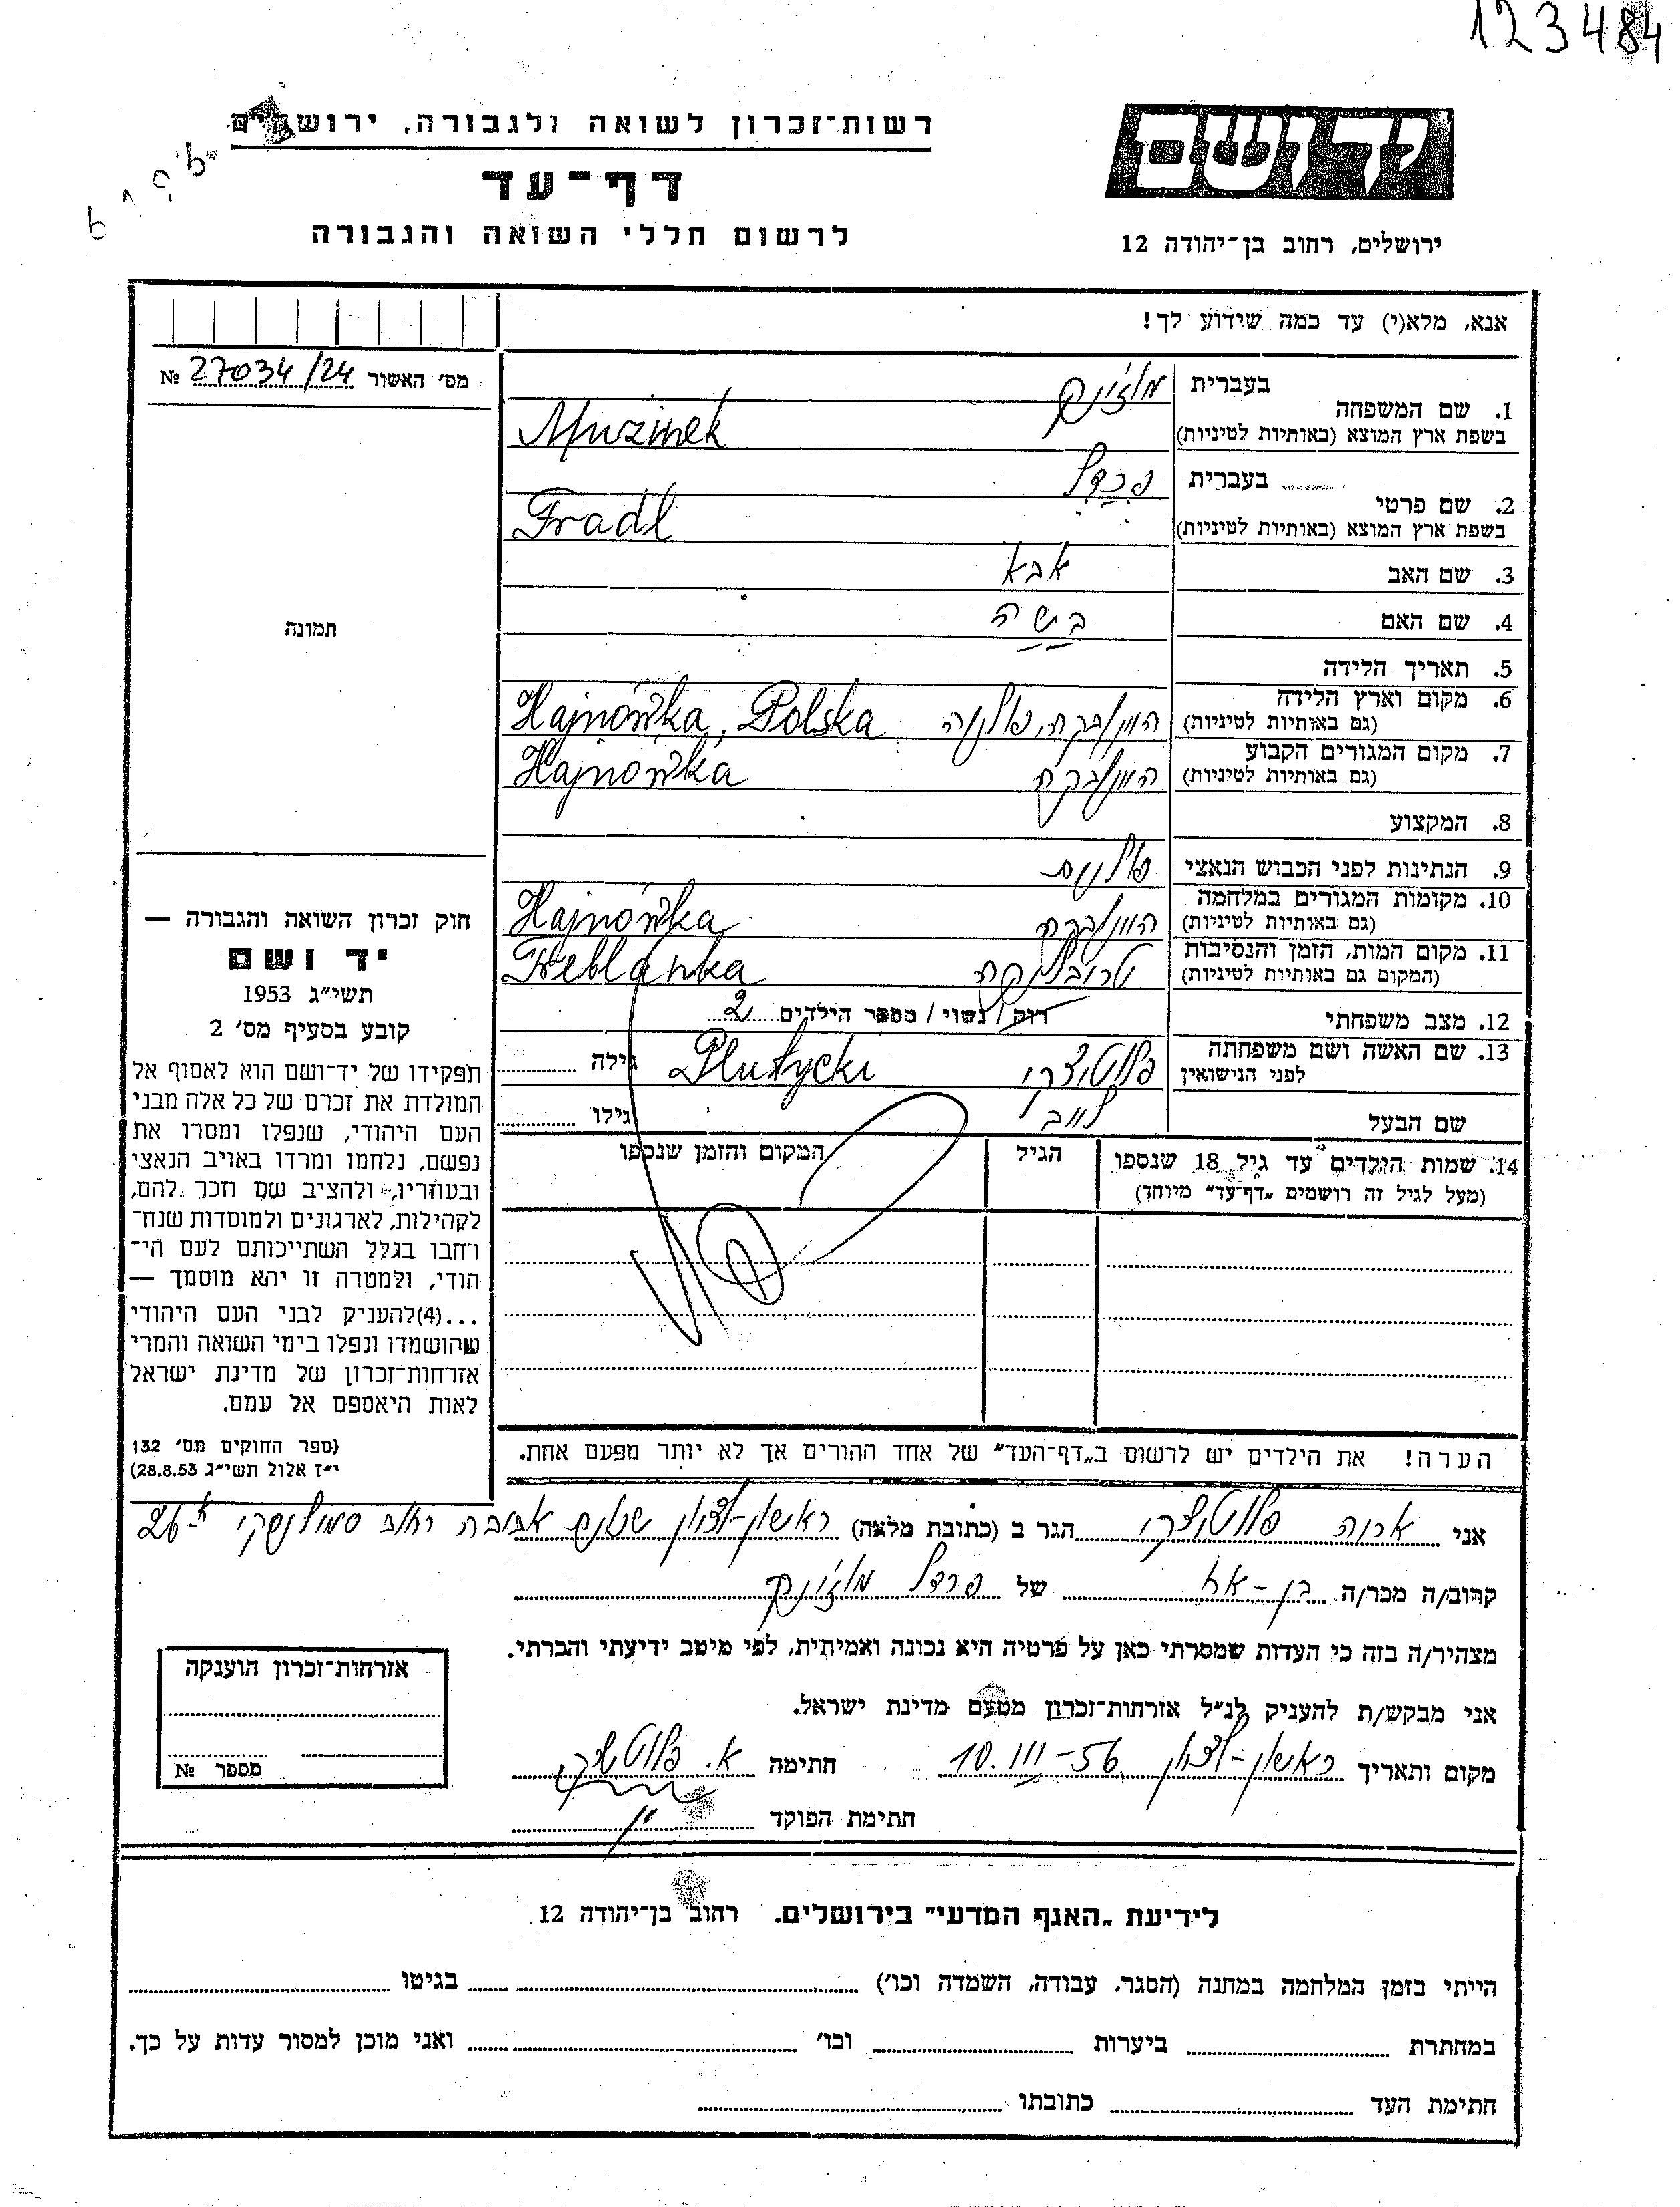 123484
יד ושם
ירושלים, רחוב בן־יהודה 12
רשות־זכרון לשואה ולגבורה, ירושלים
דף־עד
לרשום חללי השואה והגבורה
אנא, מלא(י) עד כמה שידוע לך!
מס׳ האשור 27034/24 №
1. שם המשפחה
בעברית מוז׳ינק
בשפת ארץ המוצא (באותיות לטיניות) Muzinek
2. שם פרטי
בעברית פרדל
בשפת ארץ המוצא (באותיות לטיניות) Fradl
3. שם האב אבא
4. שם האם בשה
5. תאריך הלידה
6. מקום וארץ הלידה
(גם באותיות לטיניות) היינובקה, פולניה Hajnówka, Polska
7. מקום המגורים הקבוע
(גם באותיות לטיניות) היינובקה Hajnówka
8. המקצוע
9. הנתינות לפני הכבוש הנאצי פולנית
10. מקומות המגורים במלחמה
(גם באותיות לטיניות) היינובקה Hajnówka
11. מקום המות, הזמן והנסיבות
(המקום גם באותיות לטיניות) טרובלינקה Treblanka
12. מצב משפחתי רוק / נשוי / מספר הילדים 2
13. שם האשה ושם משפחתה
לפני הנישואין פלוטיצקי Plutycki גילה
שם הבעל לייב גילו
14. שמות הילדים עד גיל 18 שנספו הגיל המקום והזמן שנספו
(מעל לגיל זה רושמים „דף־עד״ מיוחד)
הערה! את הילדים יש לרשום ב„דף־העד״ של אחד ההורים אך לא יותר מפעם אחת.
תמונה
חוק זכרון השואה והגבורה —
יד ושם
תשי״ג 1953
קובע בסעיף מס׳ 2
תפקידו של יד־ושם הוא לאסוף אל
המולדת את זכרם של כל אלה מבני
העם היהודי, שנפלו ומסרו את
נפשם, נלחמו ומרדו באויב הנאצי
ובעוזריו, ולהציב שם וזכר להם,
לקהילות, לארגונים ולמוסדות שנח־
רבו בגלל השתייכותם לעם הי־
הודי, ולמטרה זו יהא מוסמך —
...(4)להעניק לבני העם היהודי
שהושמדו ונפלו בימי השואה והמרי
אזרחות־זכרון של מדינת ישראל
לאות היאספם אל עמם.
(ספר החוקים מס׳ 132
י״ז אלול תשי״ג 28.8.53)
אני אריה פלוטיצקי הגר ב (כתובת מלאה) ראשון-לציון שכונת אביבה רחוב סמולנסקי 26א
קרוב/ה מכר/ה בן-אח של פרדל מוז׳ינק
מצהיר/ה בזה כי העדות שמסרתי כאן על פרטיה היא נכונה ואמיתית, לפי מיטב ידיעתי והכרתי.
אני מבקש/ת להעניק לנ״ל אזרחות־זכרון מטעם מדינת ישראל.
מקום ותאריך ראשון-לציון 10.III-56 חתימה א. פלוטיצקי
חתימת הפוקד
אזרחות־זכרון הוענקה
מספר №
לידיעת „האגף המדעי״ בירושלים. רחוב בן־יהודה 12
הייתי בזמן המלחמה במחנה (הסגר, עבודה, השמדה וכו׳) בגיטו
במחתרת ביערות וכו׳ ואני מוכן למסור עדות על כך.
חתימת העד כתובתו